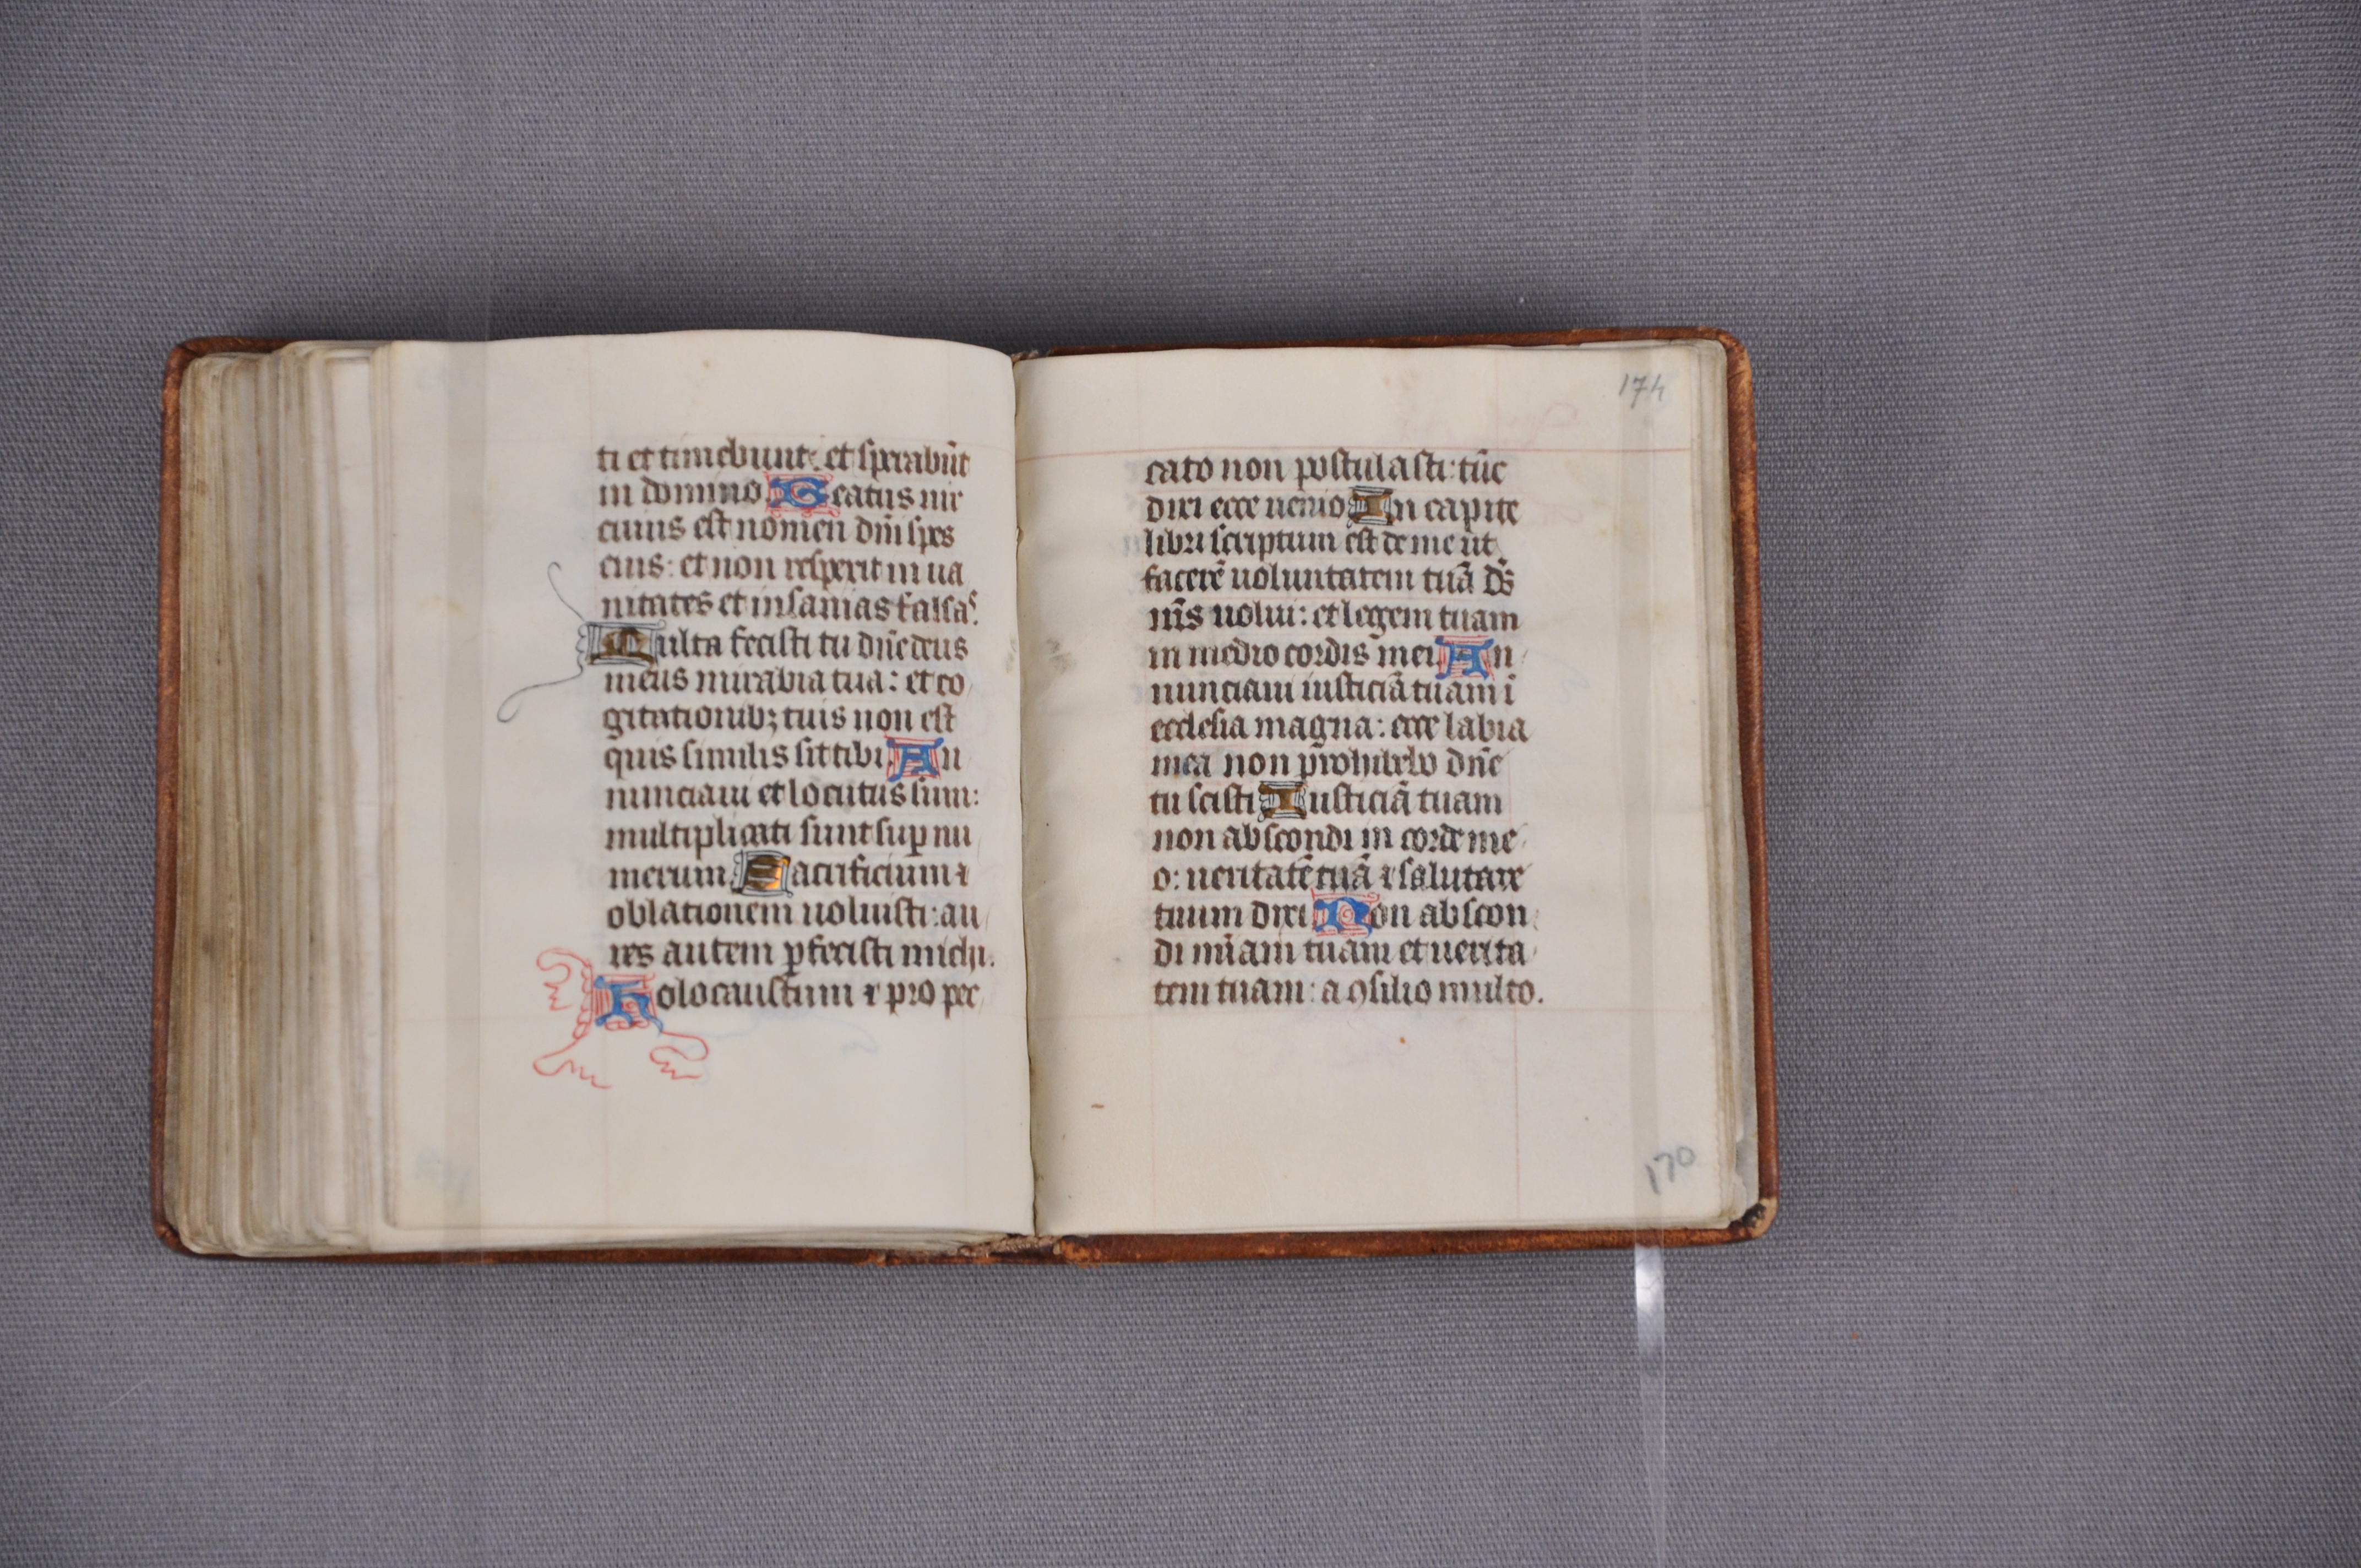 ti et timebunt: et sperabūt
in domino. Beatus uir
cuius est nomen dn̄i spes
eius: et non respexit in ua
nitates et insanias falsas.
Multa fecisti tu dn̄e deus
meus mirabia tua: et co
gitationibꝫ tuis non est
quis similis sit tibi. An
nunciaui et locutus sum:
multiplicati sunt suꝑ nu
merum. Sacrificium ⁊
oblationem uoluisti: au
res autem ꝑfecisti michi.
Holocaustum ⁊ pro pec
174
cato non postulasti: tūc
dixi ecce uenio. In capite
libri scriptum est de me ut
facerē uoluntatem tuā ds̄
ms̄ uolui: et legem tuam
in medio cordis mei. An
nunciaui iusticiā tuam ī
ecclesia magna: ecce labia
mea non prohibebo dn̄e
tu scisti. Iusticiā tuam
non abscondi in corde me
o: ueritatē tuā ⁊ salutare
tuum dixi. Non abscon
di mīam tuam et uerita
tem tuam: a ꝯsilio multo.
170